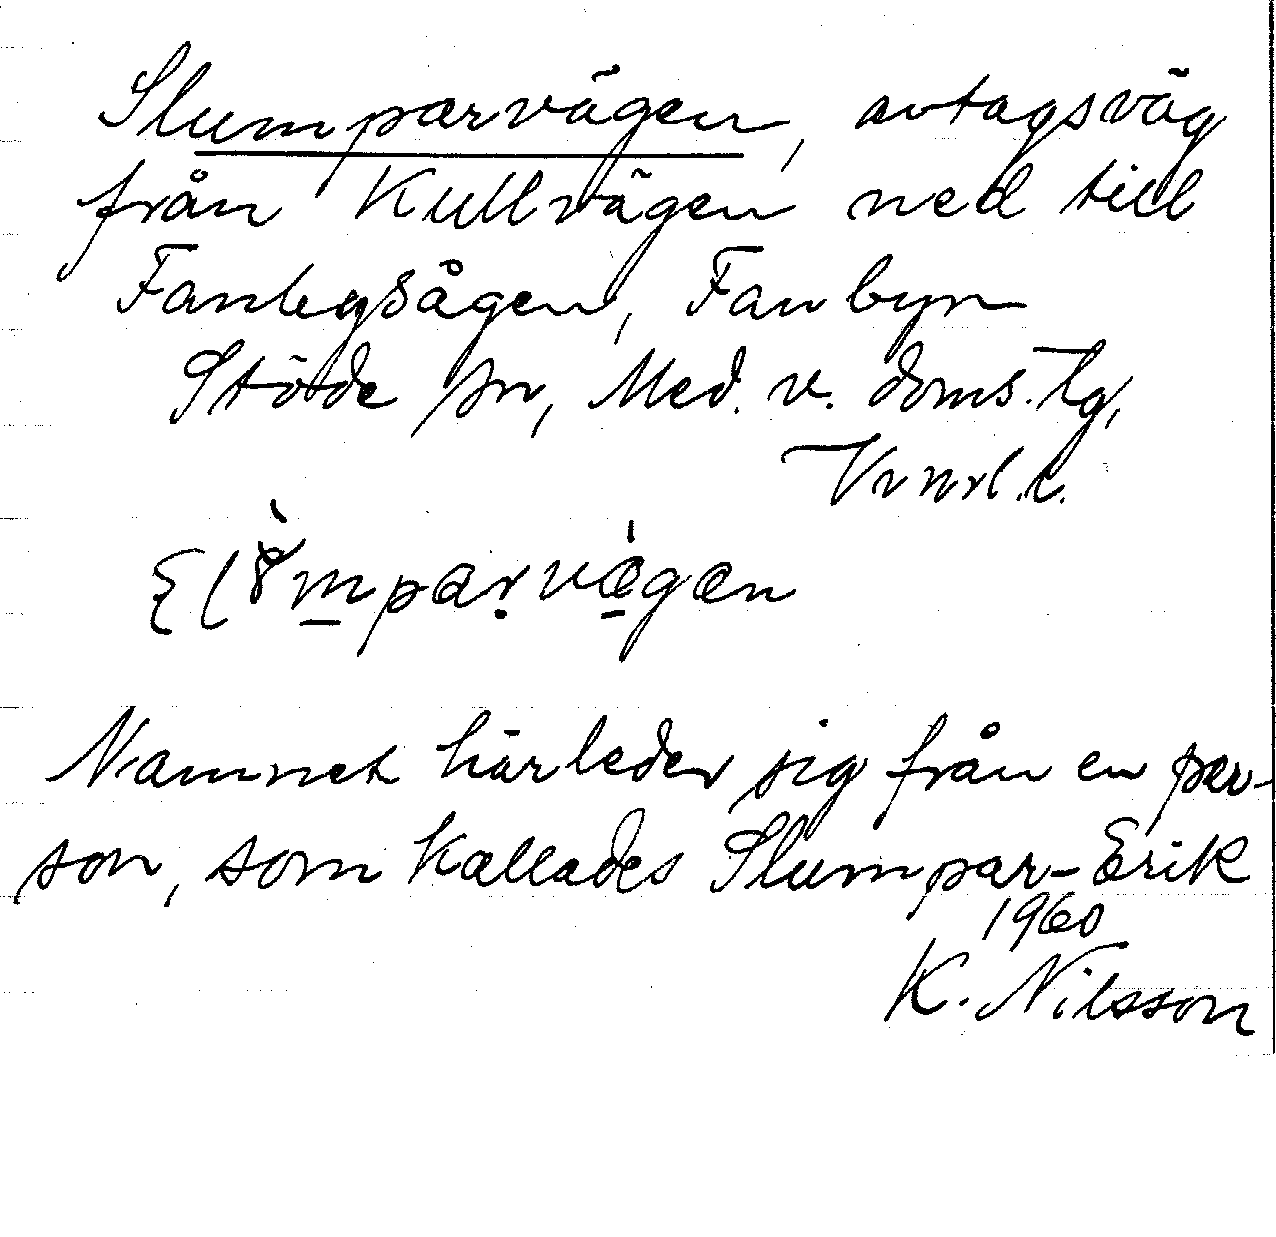 Slumparvägen, avtagsväg
från Kullvägen ned till
Fanbysågen, Fanbyn
Stöde sn, Med. v. doms. Tg,
Vnrl. l.
Namnet härleder sig från en per-
son, som kallades Slumpar-Erik
1960
K. Nilsson